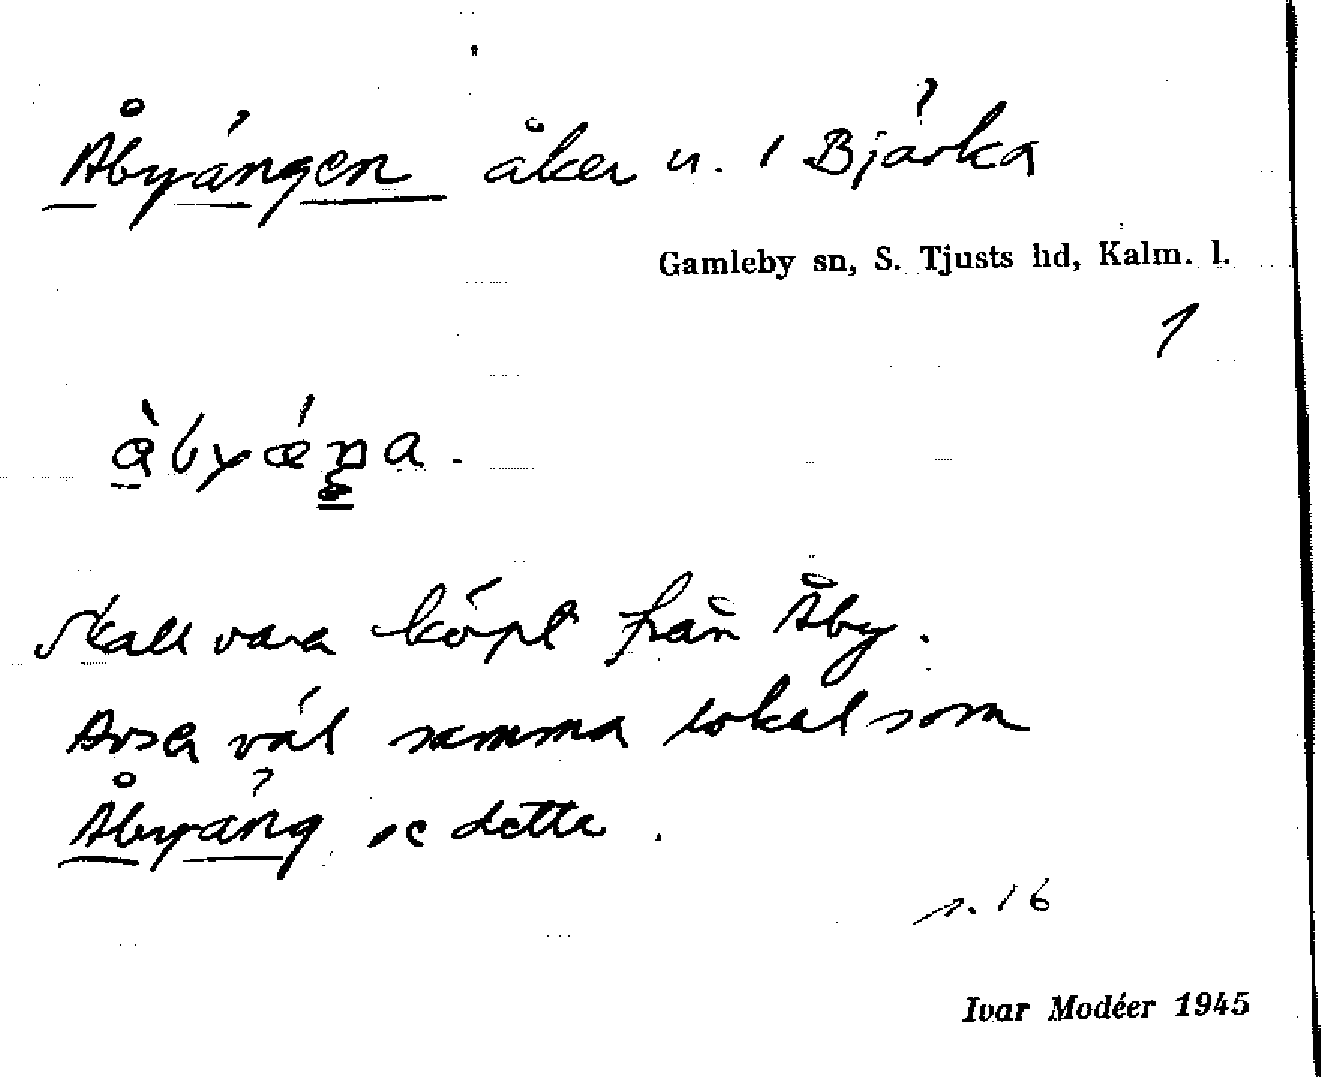 Åbyängen åker u. 1 Bjärka
Gamleby sn, S. Tjusts hd, Kalm. l.
1
Skall vara köpt från Åby.
Avser väl samma lokal som
Åbyäng se dette.
s. 16
Ivar Modéer 1945